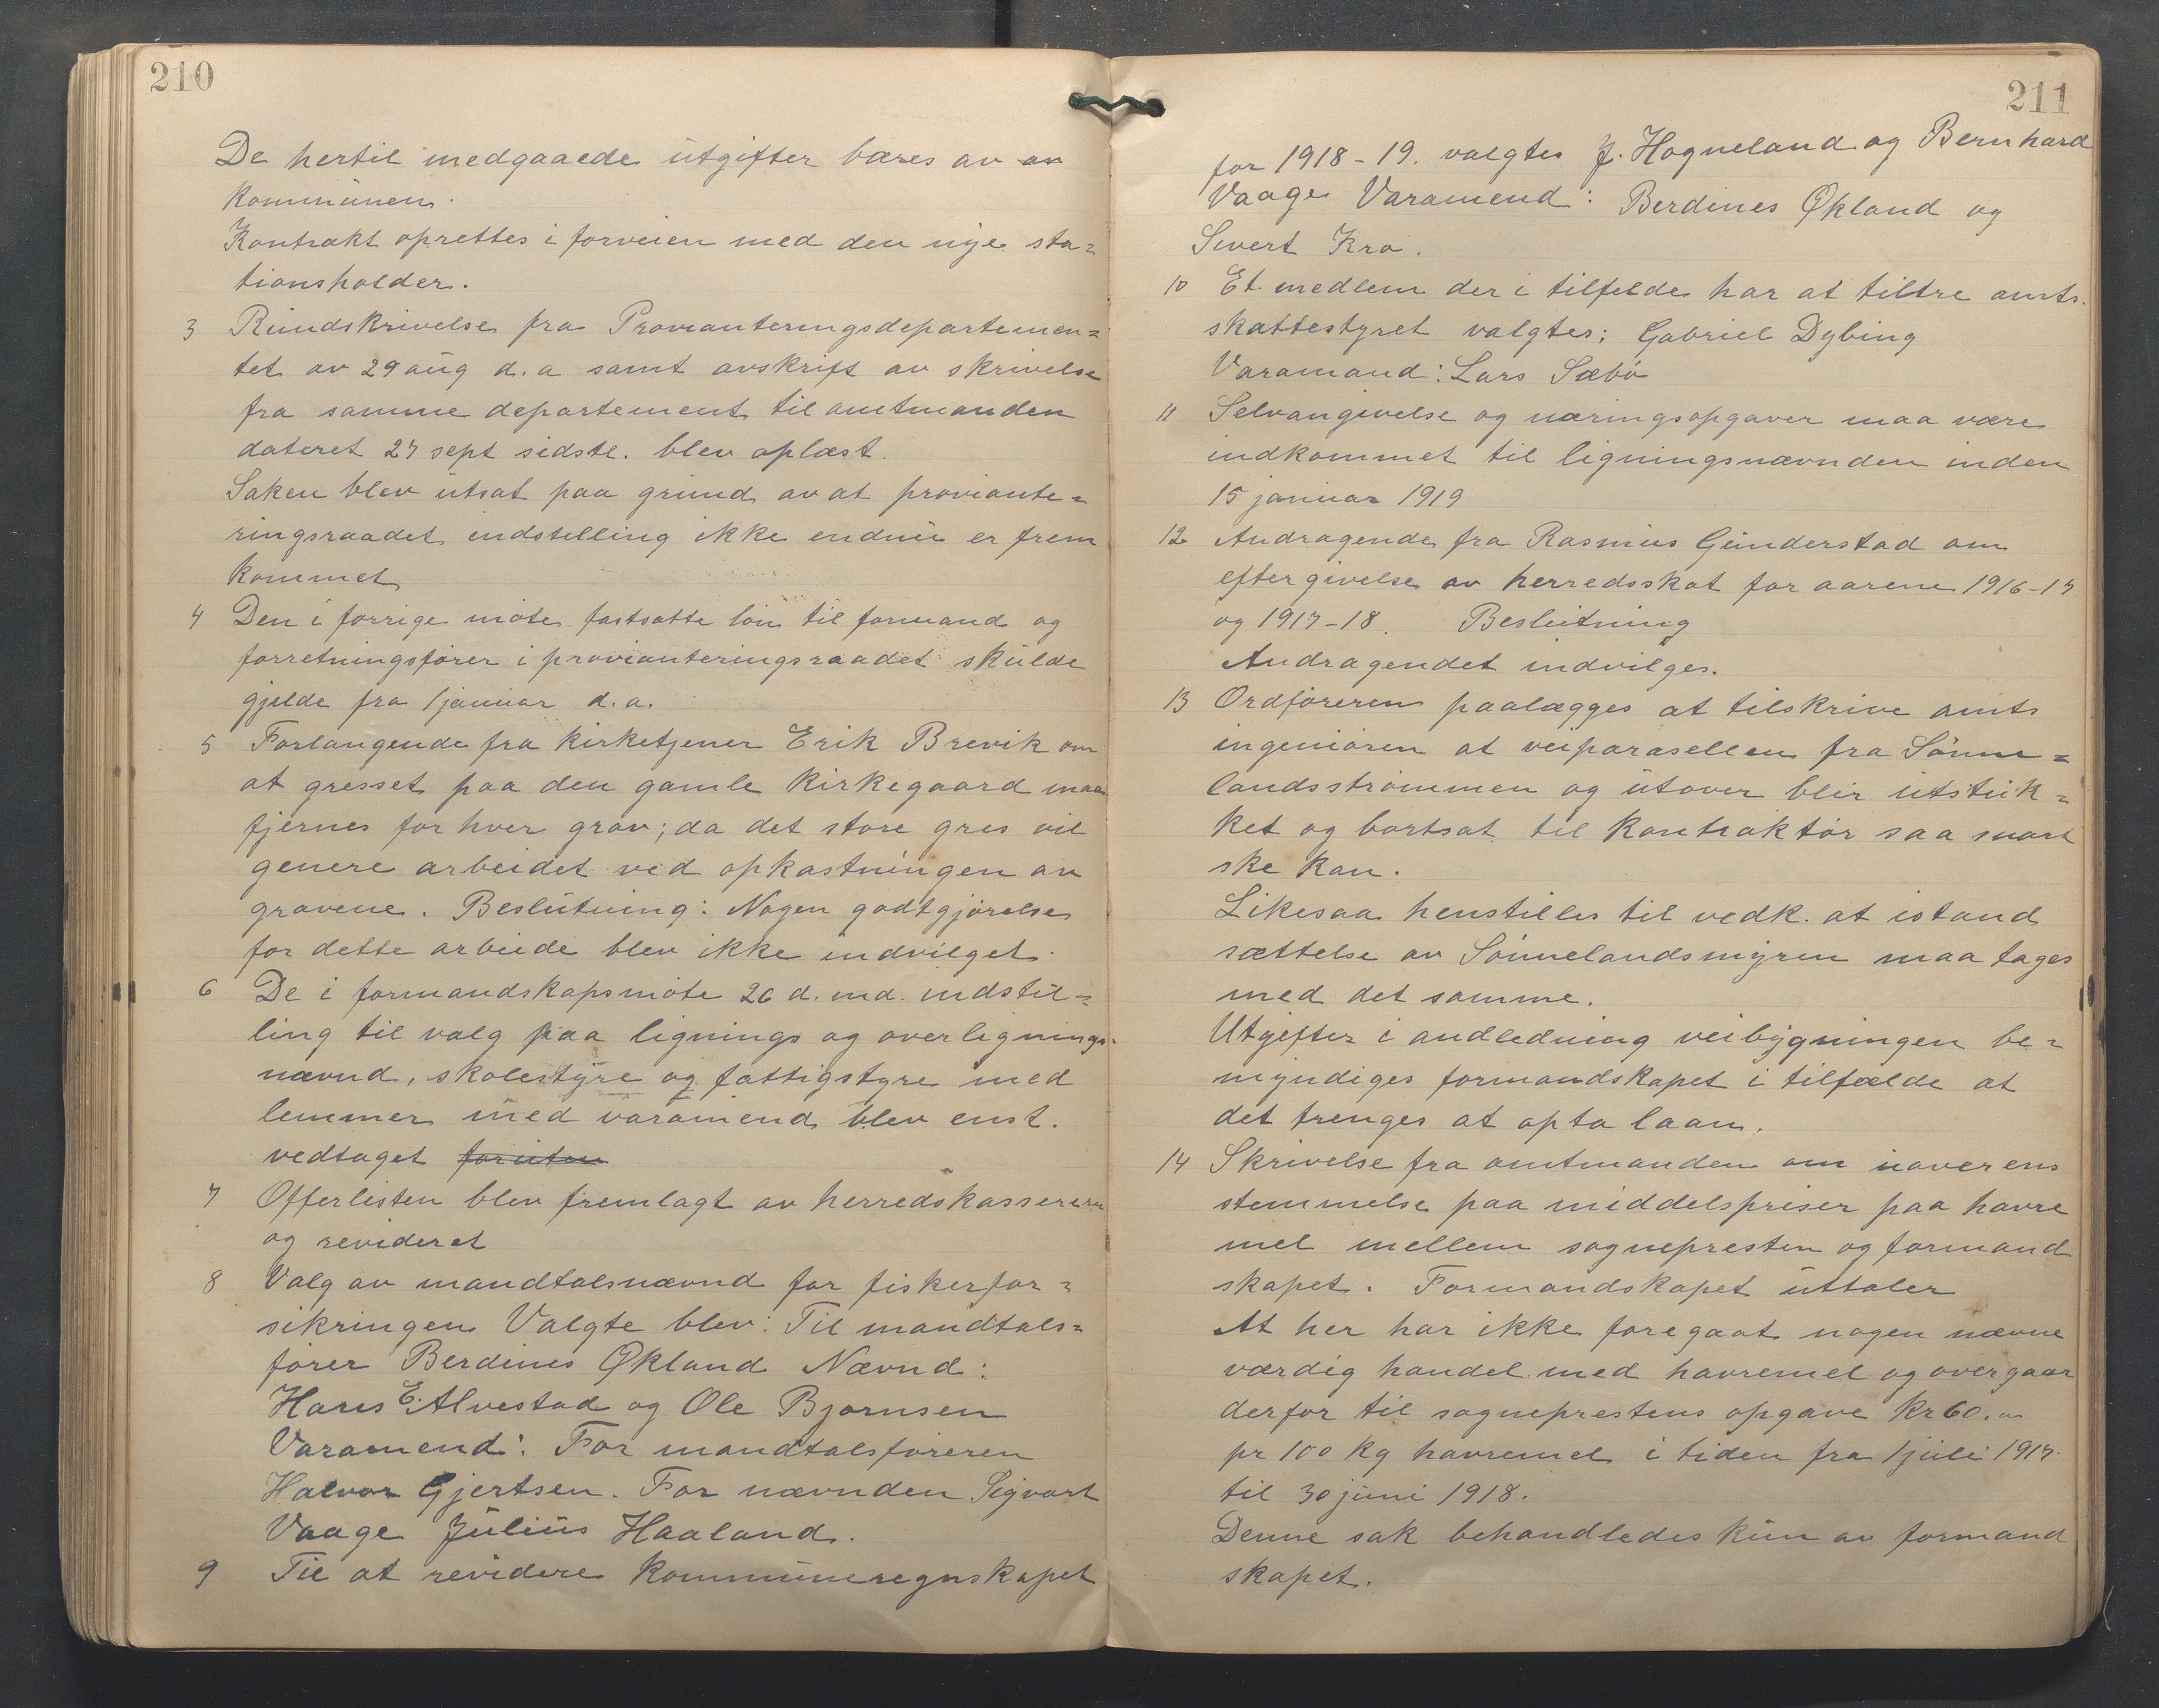 210
De hertil medgaaede utgifter bæres av av
kommunen.
Kontrakt oprettes i forveien med den nye sta=
tionsholder.
3 Rundskrivelse fra Provianteringsdepartemen=
tet av 29 aug d. a samt avskrift av skrivelse
fra samme departement til amtmanden
dateret 27 sept sidstl. blev oplæst.
Saken blev utsat paa grund av at proviante=
ringsraadet indstelling ikke endnu er frem
kommet
4 Den i forrige møte fastsatte løn til formand og
forretningsfører i provianteringsraadet skulde
gjelde fra 1 januar d. a.
5 Forlangende fra kirketjener Erik Brevik om
at gresset paa den gamle kirkegaard maa
fjernes for hver grav; da det store gres vil
genere arbeidet ved opkastningen av
gravene. Beslutning: Nogen godtgjørelse
for dette arbeide blev ikke indvilget.
6 De i formandskapsmøte 26 d. md. indstil=
ling til valg paa lignings og overlignings.
nævnd, skolestyre og fattigstyre med
lemmer med varamend blev enst.
vedtaget foruten
7 Offerlisten blev fremlagt av herredskassereren
og revideret
8 Valg av mandtalsnævnd for fiskerfor=
sikringen Valgte blev: Til mandtals=
fører Berdines Økland Nævnd:
Hans E. Alvestad og Ole Bjørnsen
Varamend: For mandtalsføreren
Halvor Gjertsen. For nævnden Sigvart
Vaage Julius Haaland.
9 Til at revidere kommuneregnskapet
211
for 1918-19. valgtes J. Hogneland og Bernhard
Vaage Varamend: Berdines Økland og
Sivert Kro.
10 Et medlem der i tilfelde har at tiltre amts.
skattestyret valgtes: Gabriel Dybing
Varamand: Lars Sæbø
11 Selvangivelse og næringsopgaver maa være
indkommet til ligningsnævnden inden
15 januar 1919
12 Andragende fra Rasmus Gunderstad om
eftergivelse av herredsskat for aarene 1916-17
og 1917-18. Beslutning
Andragendet indvilges.
13 Ordføreren paalægges at tilskrive amts
ingeniøren at veiparasellen fra Sønne=
landsstrømmen og utover blir utstuk=
ket og bortsat til kontraktør saa snart
ske kan.
Likesaa henstilles til vedk. at istand
sættelse av Sønnelandsmyren maa tages
med det samme.
Utgifter i andledning veibygningen be=
myndiges formandskapet i tilfælde at
det trenges at opta laan.
14 Skrivelse fra amtmanden om uoverens
stemmelse paa middelspriser paa havre
mel mellem sognepresten og formand
skapet. Formandskapet uttaler
At her har ikke foregaat nogen nævne
værdig handel med havremel og overgaar
derfor til sogneprestens opgave kr 60.00
pr 100 kg havremel i tiden fra 1 juli 1917.
til 30 juni 1918.
Denne sak behandledes kun av formand
skapet.